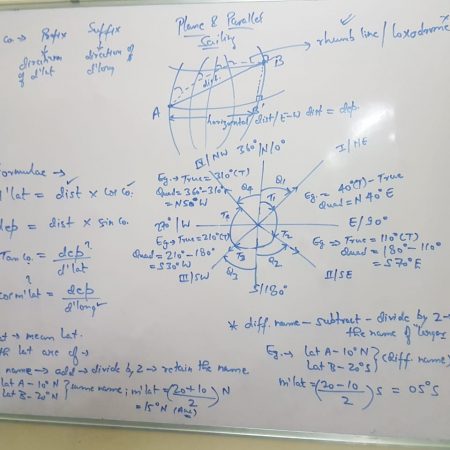 Plane & Parallel
Sailing
co. → Prefix Suffix
direction direction of
of d'lat d'long
rhumb line / loxodrome
dist.
A
B
horizontal dist/E-W dist = dep.
ormulae →
d'lat = dist × cos co.
dep = dist × sin co.
Tan co. = dep/d'lat
cos m'lat = dep/d'long
IV/NW 360°/N/0° I/NE
Eg. → True = 310°(T)
Quad = 360°-310°
= N50°W
Q4 Q1
T1
Eg. = 40°(T) - True
Quad = N 40° E
270°/W
E/90°
T2
T3
Eg → True = 210°(T)
Quad = 210° - 180°
= S30°W
Eg → True = 110°(T)
Quad = 180° - 110°
= S70°E
III/SW Q3 Q2 II/SE
S/180°
→ mean Lat.
the lat are of →
name → add → divide by 2 → retain the name.
lat A - 10°N
Lat B - 20°N } same name; m'lat = (20+10/2) N
= 15°N (Ans)
* diff. name - subtract - divide by 2 -
the name of larger
Eg. → Lat A - 10°N
Lat B - 20°S } (diff. name)
m'lat = (20-10/2) S = 05°S